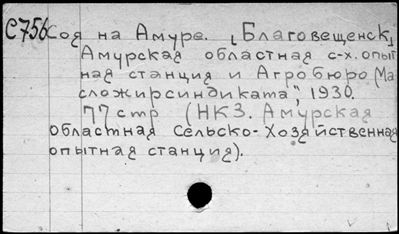 С756 Соя на Амуре. [Благовещенск]
Амурская областная с-х. опыт
ная станция и Агробюро "Ма
сложирсиндиката", 1930.
77 стр (НКЗ. Амурская
областная Сельско-Хозяйственная
опытная станция).